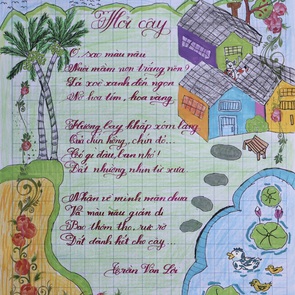 Mời cây
Ơ sao màu nâu
Nuôi mầm non trắng nõn?
Lá xoè xanh đến ngọn
Nở hoa tím, hoa vàng.
Hương bay khắp xóm làng
Quả chín hồng, chín đỏ...
Có gì đâu, bạn nhỏ!
Đất nhường nhịn từ xưa
Nhận về mình nắng mưa
Và màu nâu giản dị
Bao thơm tho, rực rỡ
Đất dành hết cho cây...
Trần Vân Lộc